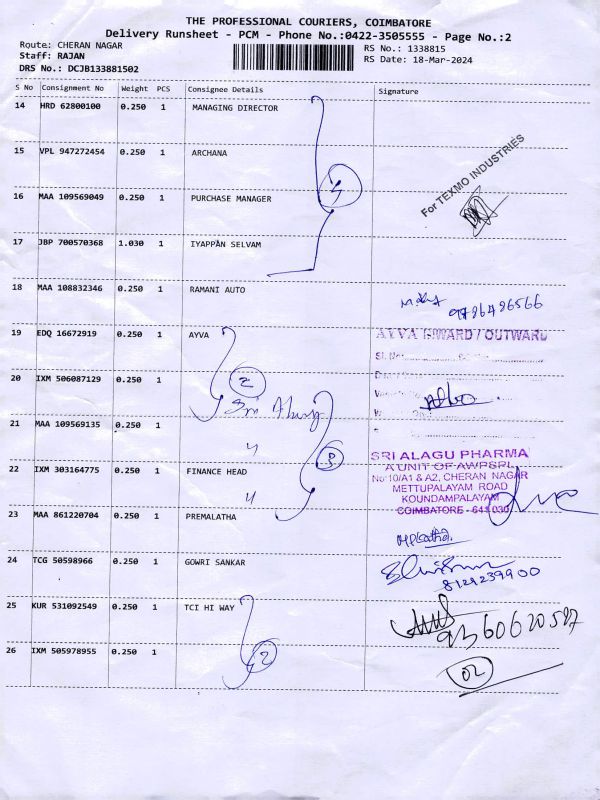 THE PROFESSIONAL COURIERS, COIMBATORE
Delivery Runsheet - PCM - Phone No.:0422-3505555 - Page No.:2
Route: CHERAN NAGAR
RS No.: 1338815
Staff: RAJAN
RS Date: 18-Mar-2024
DRS No.: DCJB133881502
S No Consignment No Weight PCS Consignee Details Signature
14 HRD 62800100 0.250 1 MANAGING DIRECTOR
15 VPL 947272454 0.250 1 ARCHANA
For TEXMO INDUSTRIES
4
16 MAA 109569049 0.250 1 PURCHASE MANAGER
17 JBP 700570368 1.030 1 IYAPPAN SELVAM
18 MAA 108832346 0.250 1 RAMANI AUTO
9786486566
19 EDQ 16672919 0.250 1 AYVA
AYVA INWARD / OUTWARD
Sl. No
20 IXM 506087129 0.250 1
2
Sri Alagu
21 MAA 109569135 0.250 1
3
SRI ALAGU PHARMA
A UNIT OF AWPSPL
22 IXM 303164775 0.250 1 FINANCE HEAD
No 10/A1 & A2, CHERAN NAGAR
METTUPALAYAM ROAD
KOUNDAMPALAYAM
COIMBATORE - 641 030
23 MAA 861220704 0.250 1 PREMALATHA
24 TCG 50598966 0.250 1 GOWRI SANKAR
8129239900
25 KUR 531092549 0.250 1 TCI HI WAY
9360620587
26 IXM 505978955 0.250 1
2
02